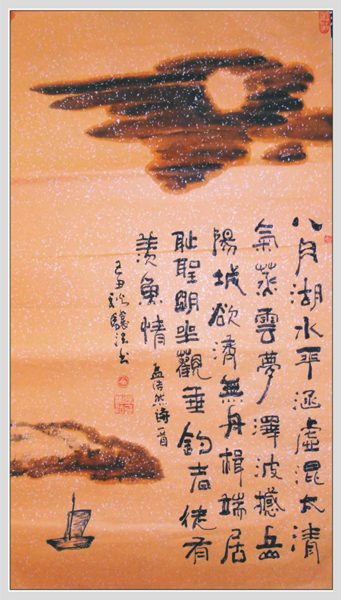 八月湖水平涵虛混太清
氣蒸雲夢澤波撼岳
陽城欲濟無舟楫端居
耻聖明坐觀垂釣者徒有
羨魚情
孟浩然詩一首
己丑秋驤